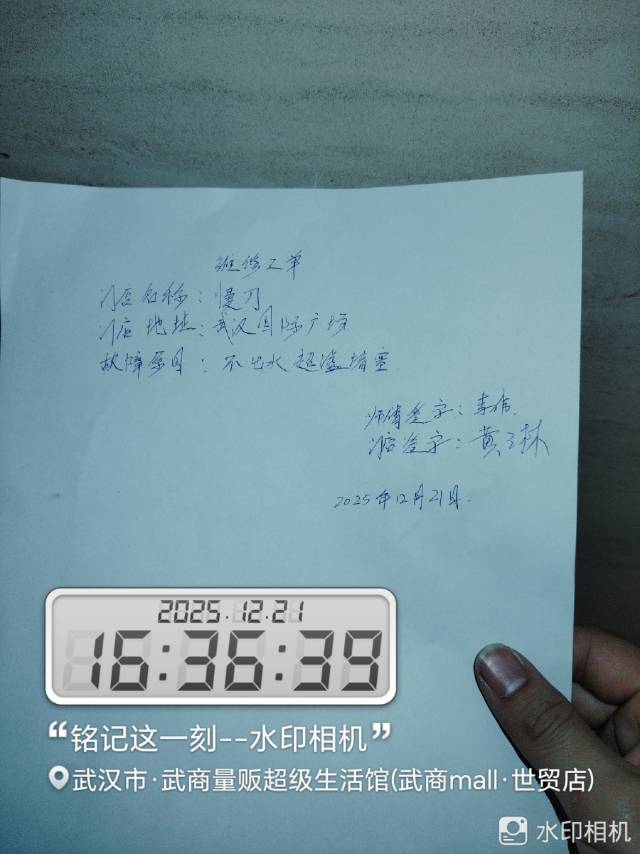 维修工单
门店名称：慢刀
门店地址：武汉国际广场
故障原因：不出水 超滤堵塞
师傅签字：李伟
门店签字：黄
2025年12月21日.
2025.12.21
16:36:39
“铭记这一刻--水印相机”
武汉市·武商量贩超级生活馆(武商mall·世贸店)
水印相机